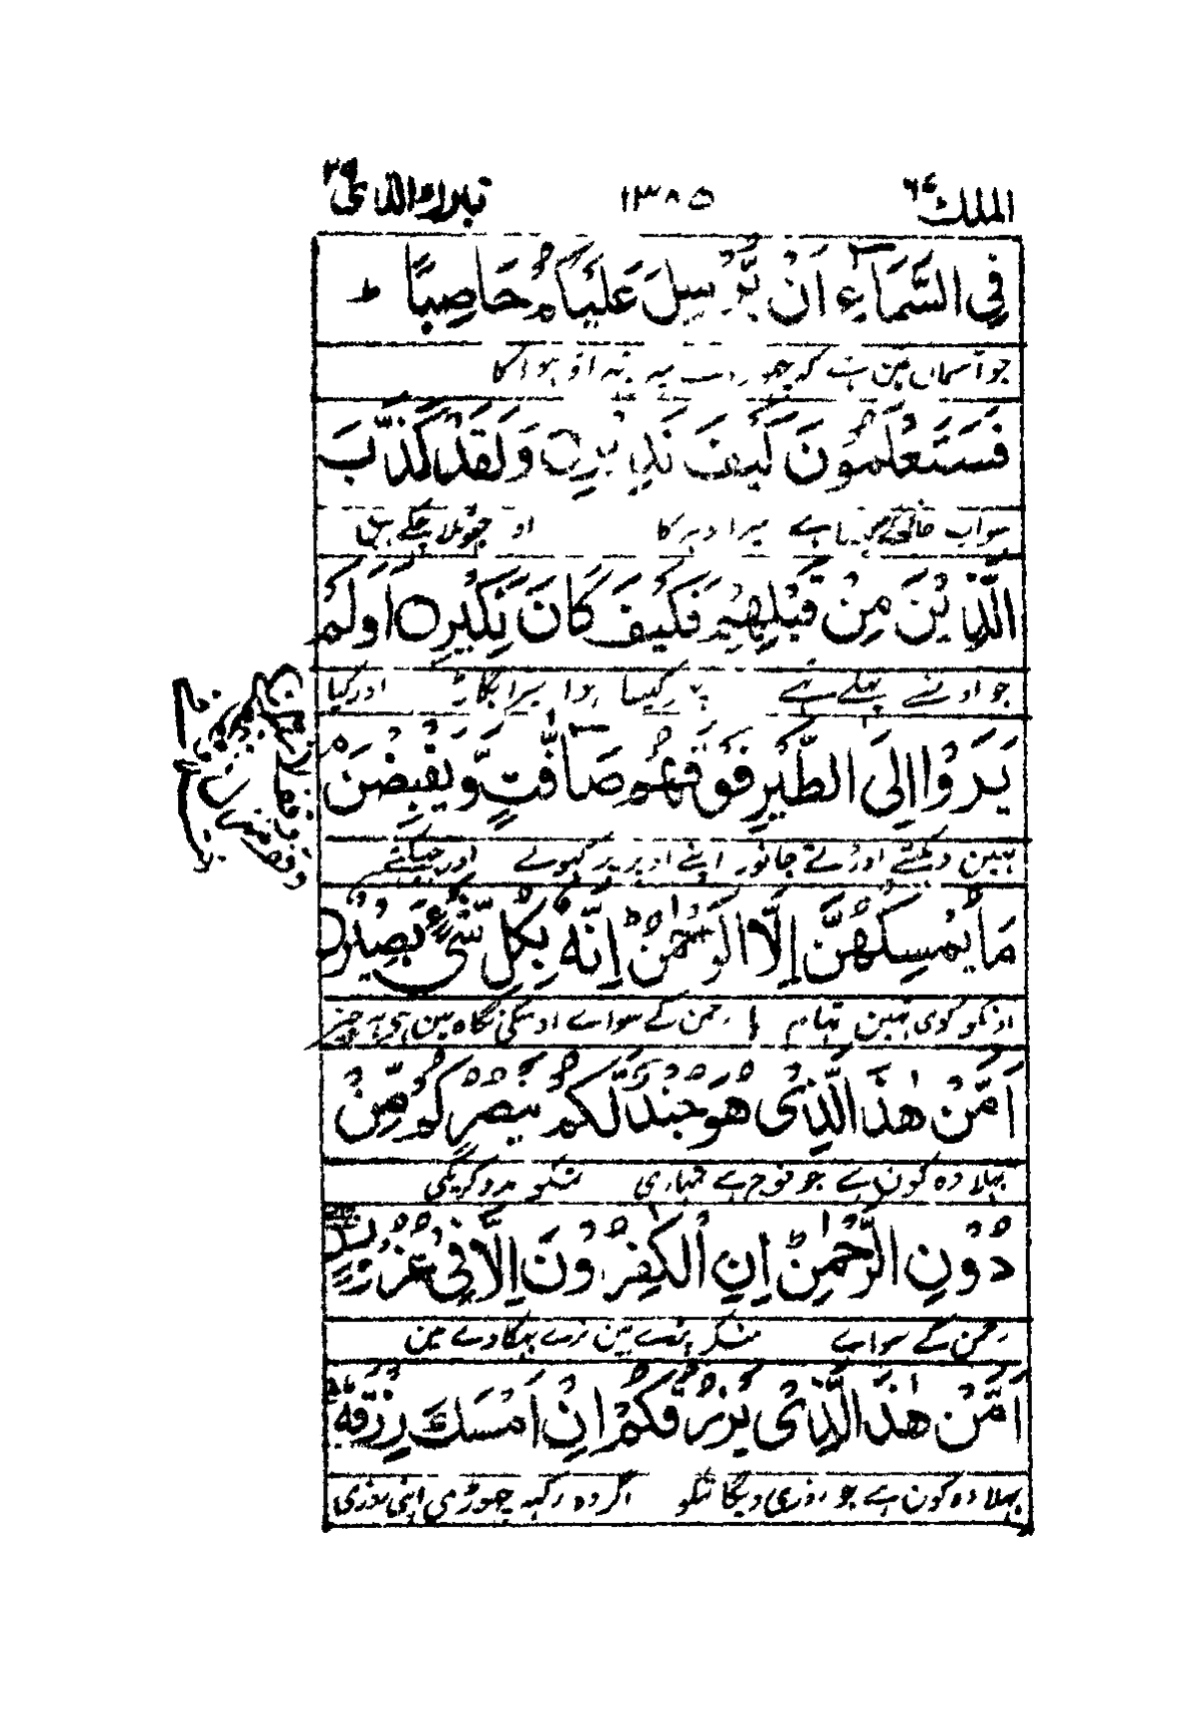 الملك ٦٧ ١٣٨٥ تبارك الذى ٢٩
فِي السَّمَآءِ اَنْ يُّرْسِلَ عَلَيْكُمْ حَاصِبًا ط
جو آسمان مین ہے کہ چھوڑ دے پتہراؤ ہوا کا
فَسَتَعْلَمُوْنَ كَيْفَ نَذِيْرِ ○ وَلَقَدْ كَذَّبَ
سو اب جانوگے کیسا ہے میرا ڈر کا او جھٹلا چکے ہین
الَّذِيْنَ مِنْ قَبْلِهِمْ فَكَيْفَ كَانَ نَكِيْرِ ○ اَوَلَمْ
جو اون سے پہلے تہے پہر کیسا ہوا میرا بگاڑ اور کیا
يَرَوْا اِلَى الطَّيْرِ فَوْقَهُمْ صٰٓفّٰتٍ وَّيَقْبِضْنَ
نہین دیکہتے اوڑتے جانور اپنے اوپر پر کہولے اور جہپکتے
مَا يُمْسِكُهُنَّ اِلَّا الرَّحْمٰنُ ط اِنَّهٗ بِكُلِّ شَيْءٍۢ بَصِيْرٌ ○
اونکو کوی نہین تہام رہا رحمن کے سواے اوسکی نگاہ مین ہی ہر چیز
اَمَّنْ هٰذَا الَّذِىْ هُوَ جُنْدٌ لَّكُمْ يَنْصُرُكُمْ مِّنْ
بہلا وہ کون ہے جو فوج ہے تمہاری تمکو مدد کریگی
دُوْنِ الرَّحْمٰنِ ط اِنِ الْكٰفِرُوْنَ اِلَّا فِيْ غُرُوْرٍ ○
رحمن کے سواے منکر پڑے ہین نرے بہکاوے مین
اَمَّنْ هٰذَا الَّذِىْ يَرْزُقُكُمْ اِنْ اَمْسَكَ رِزْقَهٗ
بہلا وہ کون ہے جو روزی دیگا تمکو اگر وہ رکہہ چہوڑی اپنی روزی